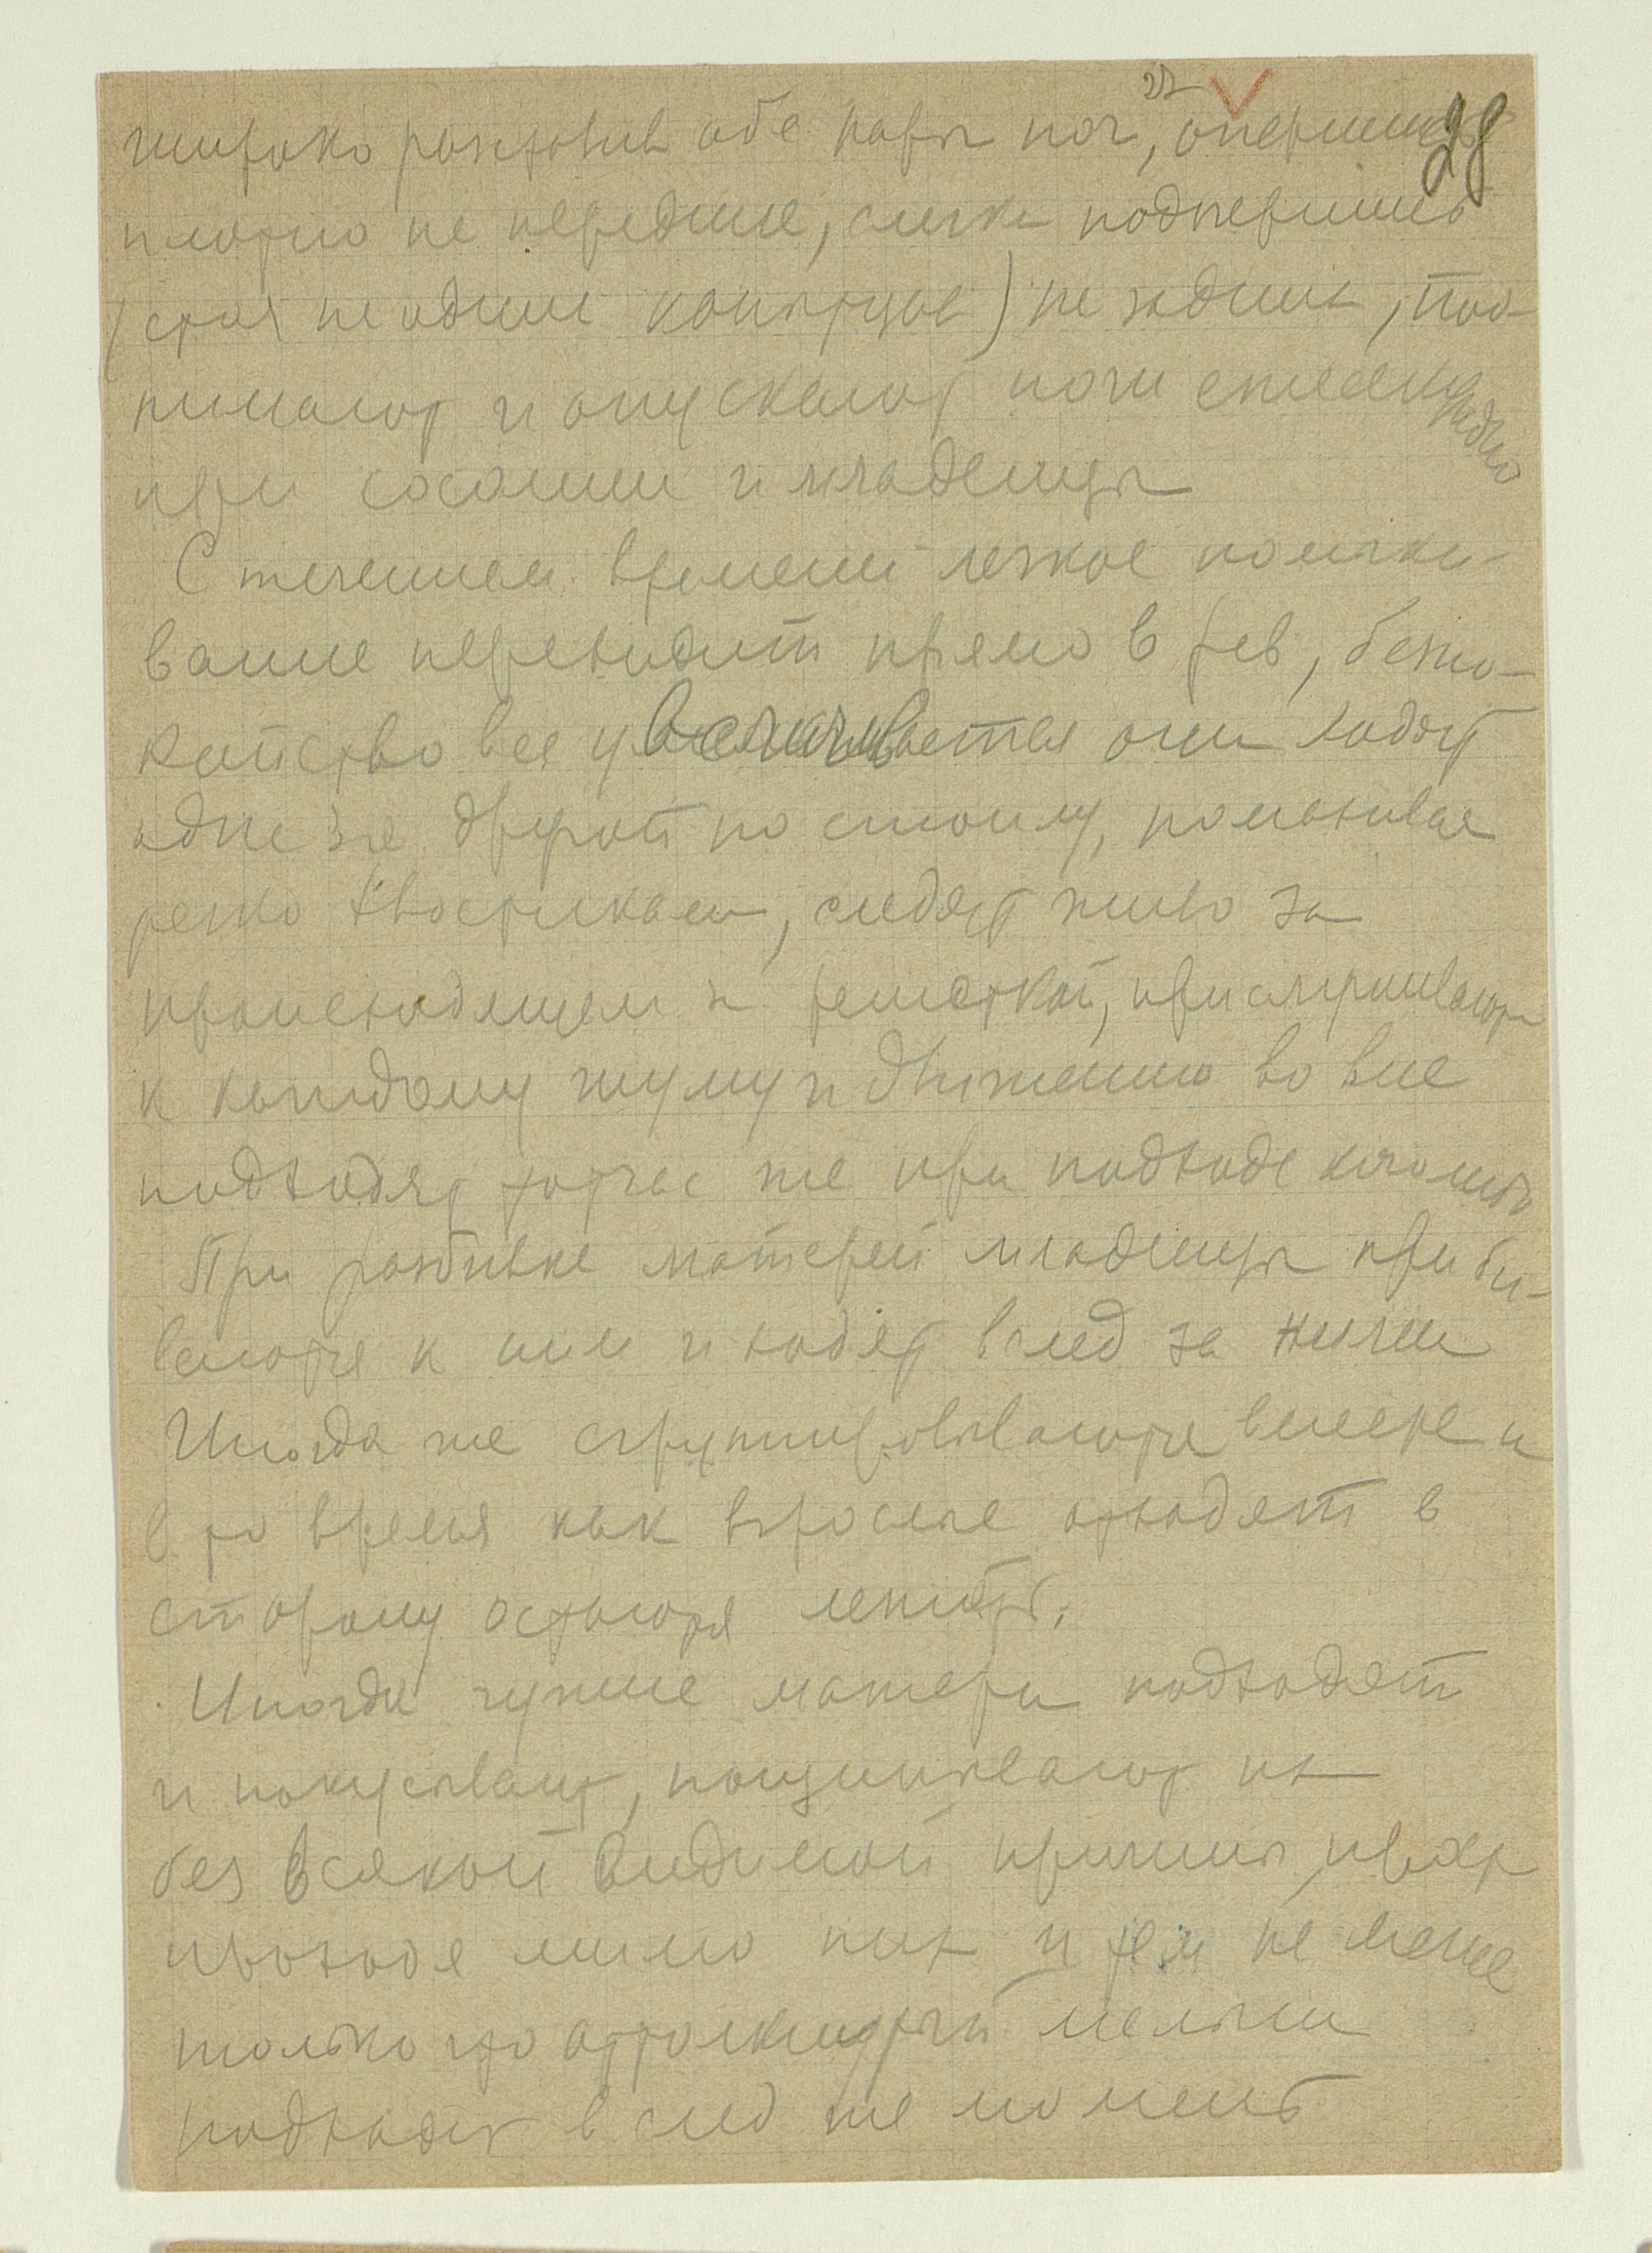 22 28
широко расставив обе пары ног, опершись
плотно на передние, слегка подпершись
(стоя на одних копытцах) на задних, под-
нимают и опускают ноги
при сосании и младенцы
С течением времени легкое помяки-
вание переходит прямо в рев, беспо-
койство все увеличивается они ходят
одна за другой по стойлу, помахивая
резко хвостиками, следят живо за
происходящем за решеткой, прислушиваются
к каждому шуму и движению во вне
подходят тотчас же при подходе к
При разбивке матерей младенцы приби-
ваются к ним и ходят вслед за ними
Иногда же сгруппировываются вместе и
в то время как взрослые отходят в
сторону остаются лежать.
Иногда чужие матери подходят
и покусывают, пощипывают их
без всякой видимой причины, просто
проходя мимо них и тем не менее
только что оттолкнутый малыш
подходит вслед же